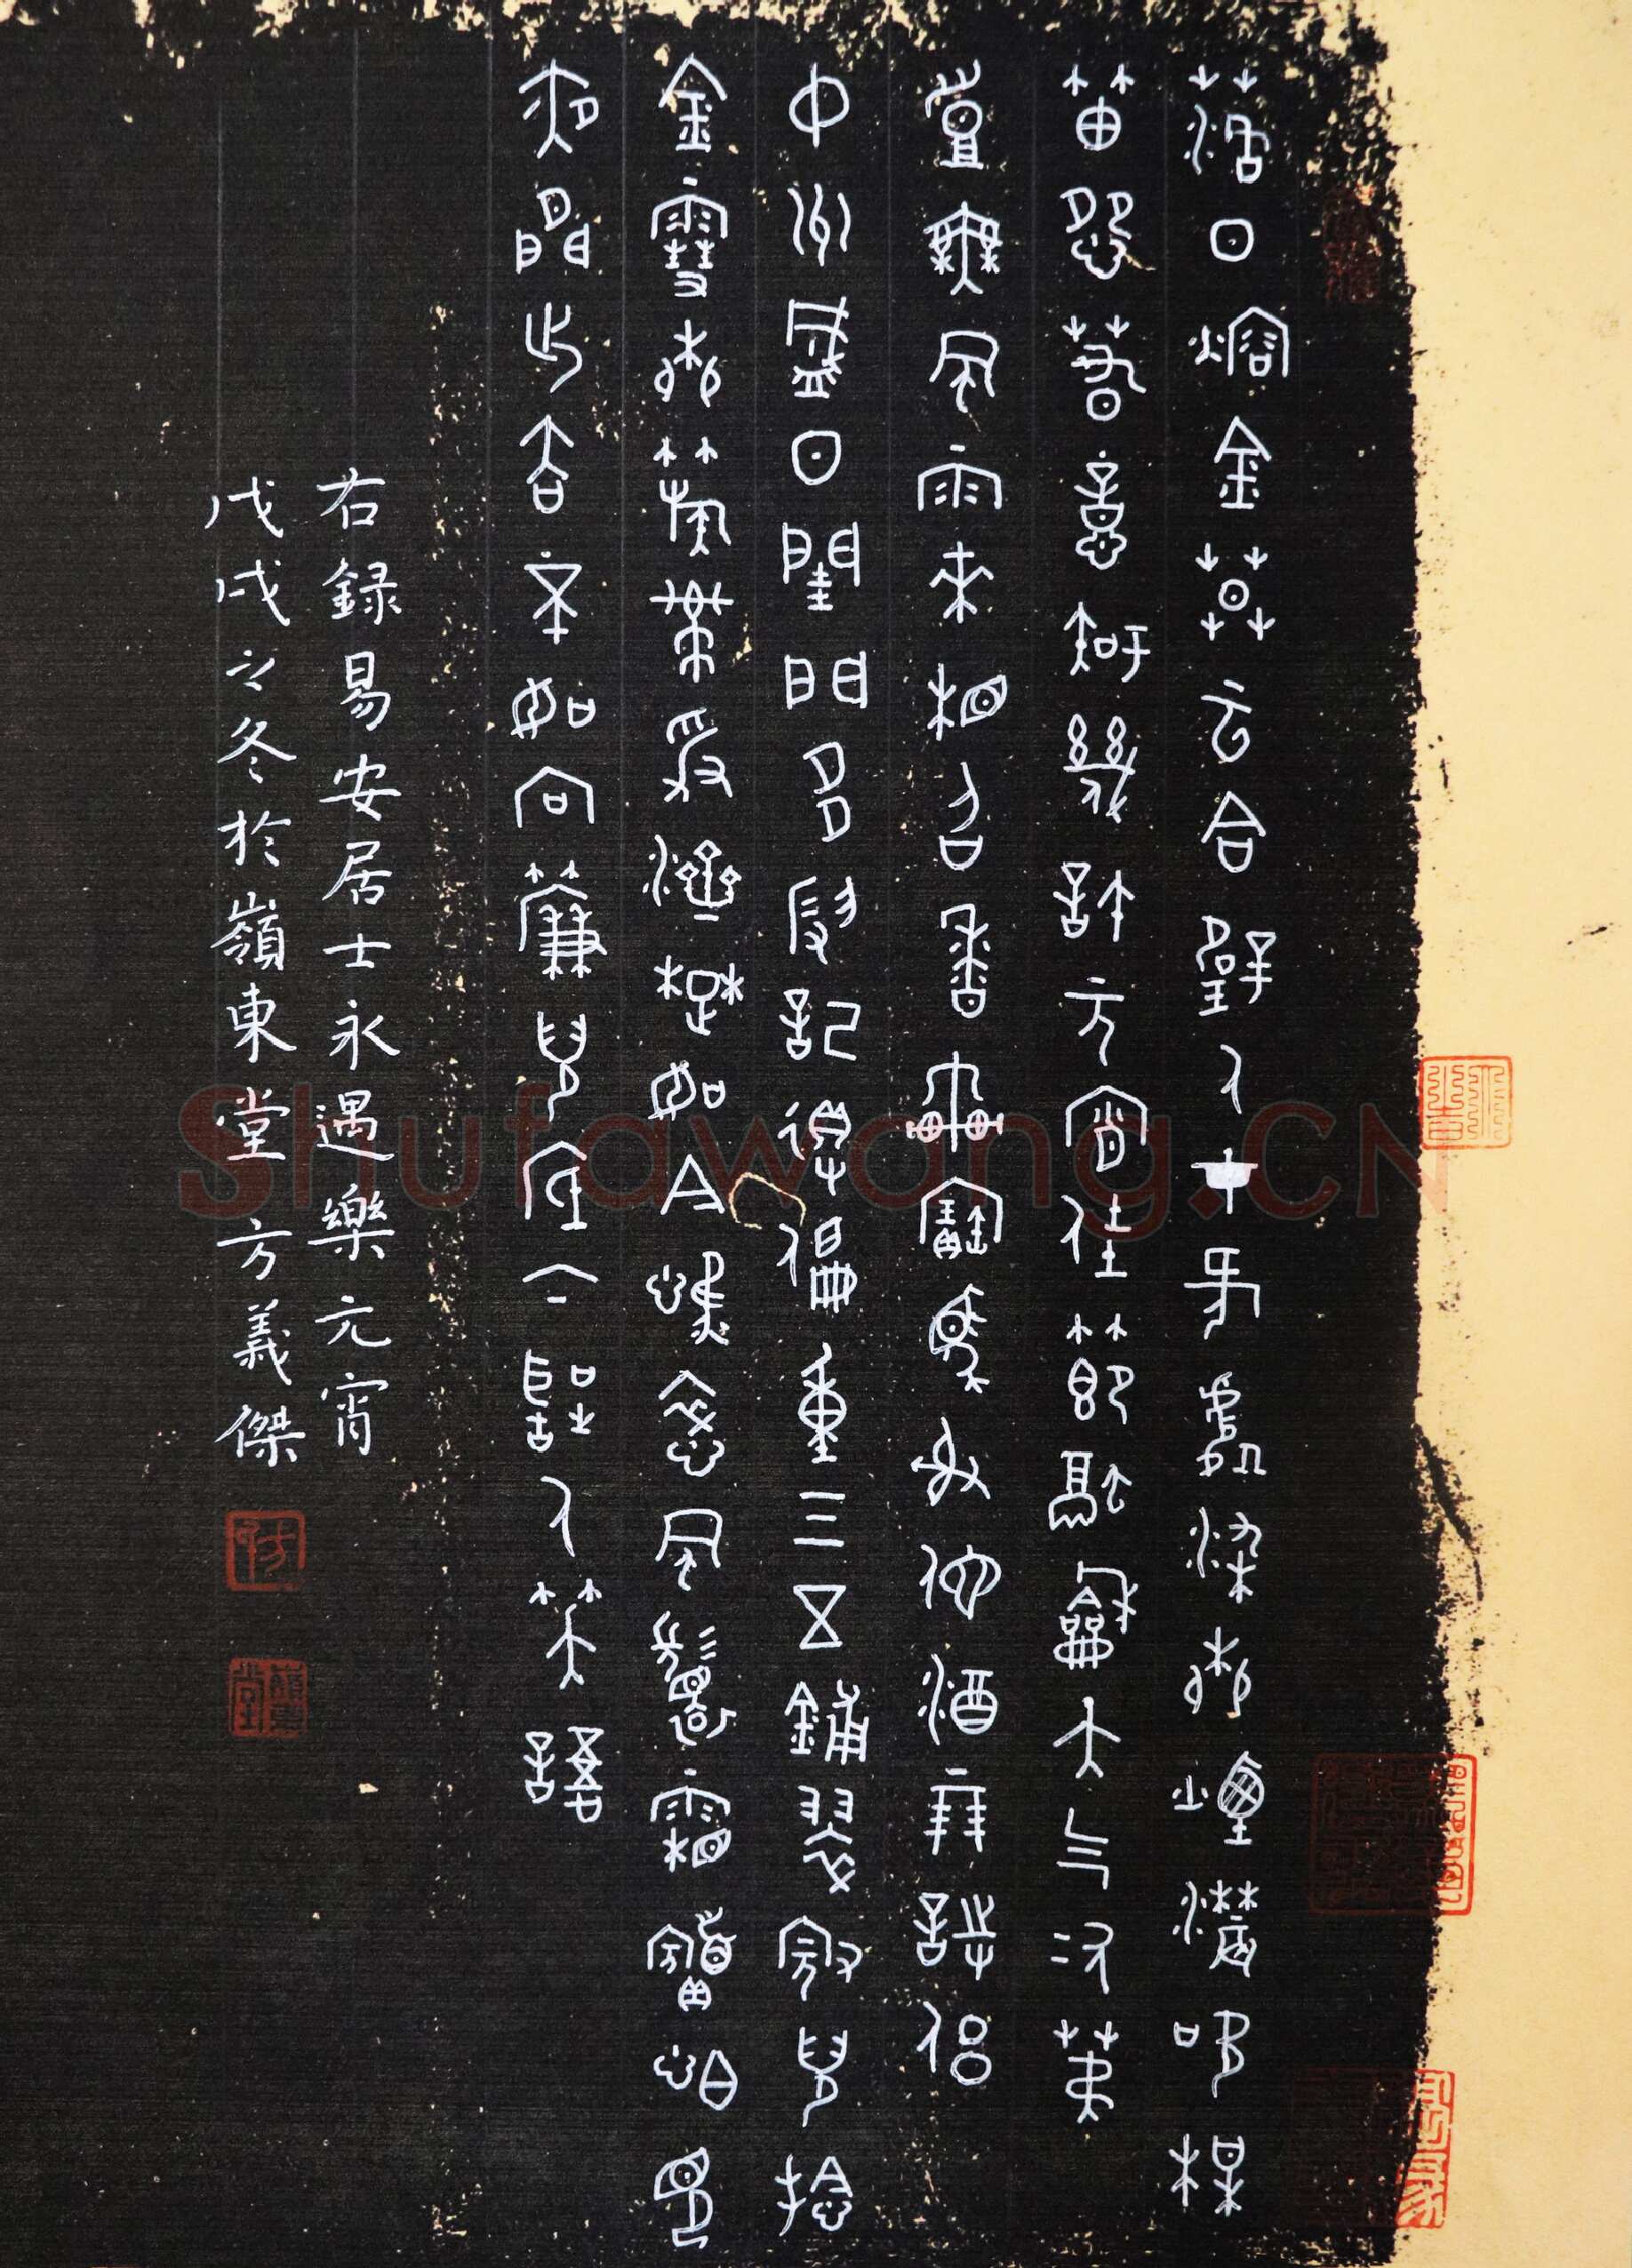 落日熔金莫云合璧人才何處染柳煙濃吹梅
笛怨春意知幾許元宵佳節融和大气次弟
豈無風雨來相召香車寶馬謝他酒朋詩侶
中州盛日閨門多叚記得偏重三五鋪翠冠兒捻
金雪柳簇帶爭濟楚如今憔悴風鬟霜鬢怕見
夜間出去不如向簾兒底下聽人笑語
右録易安居士永遇樂元宵
戊戌之冬於嶺東堂方義傑
Shufawang.CN